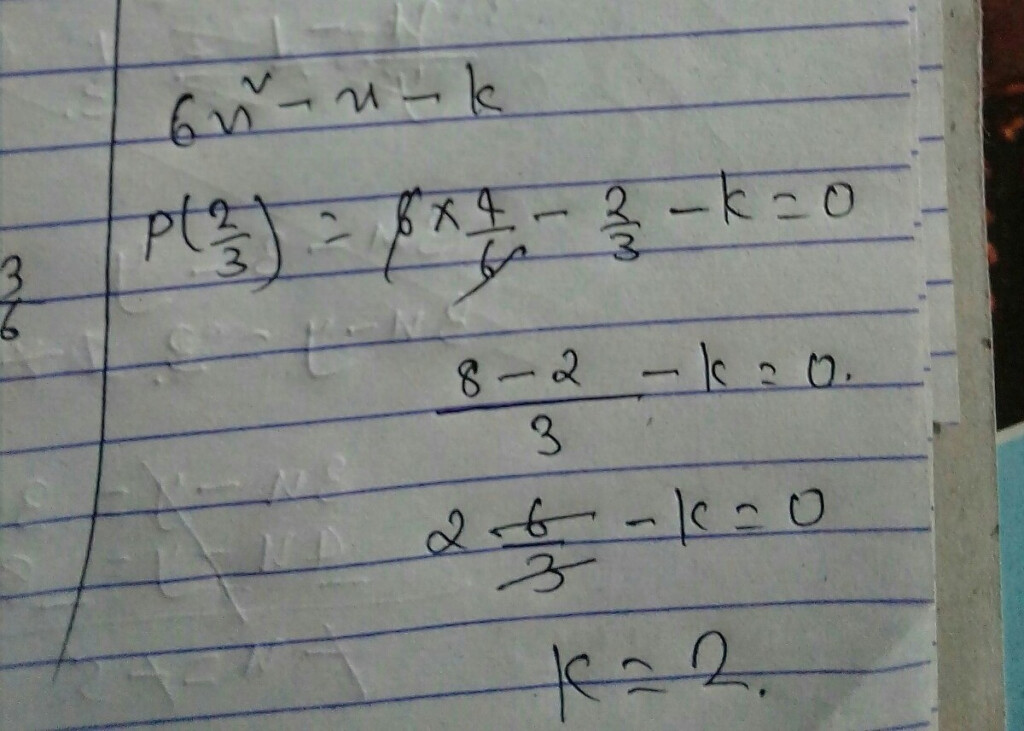 6x² - x - k
P(2/3) = 6 × 4/6 - 2/3 - k = 0
3/6
(8 - 2)/3 - k = 0.
2 6/3 - k = 0
k = 2.